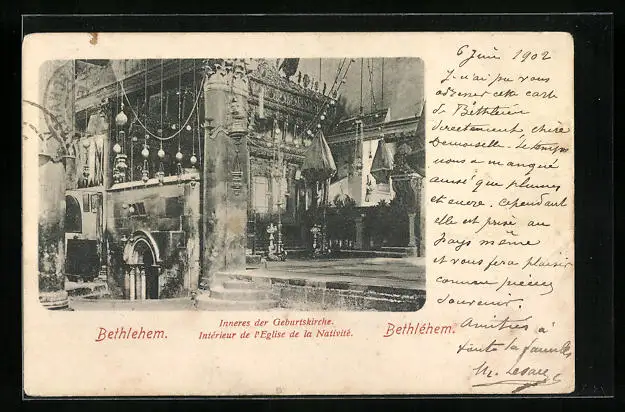 6 Juin 1902
Je n'ai pu vous
adresser cette carte
de Bethléem
directement, chère
Demoiselle. Le temps
nous a manqué
ainsi que plumes
et encre. Cependant
elle est prise au
Pays même
et vous fera plaisir
comme
souvenir.
Amitiés à
toute la famille
Inneres der Geburtskirche.
Bethlehem. Intérieur de l'Eglise de la Nativité. Bethléhem.